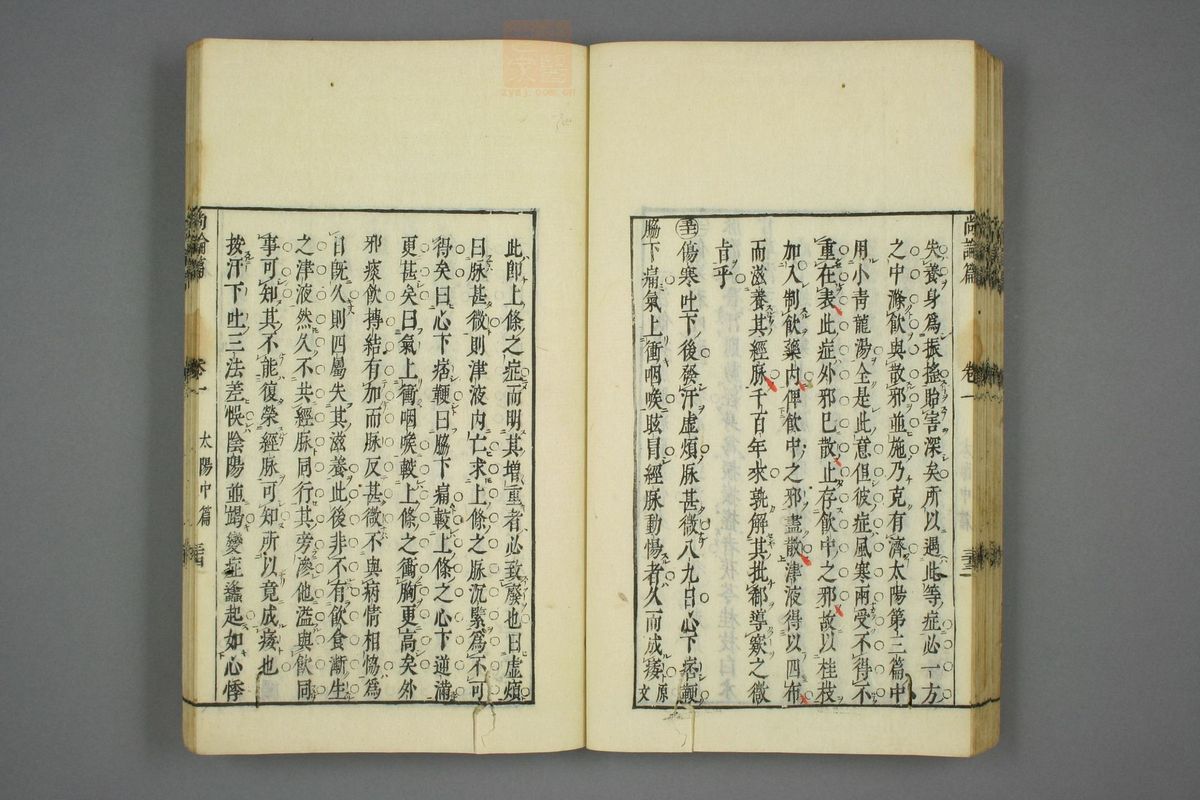 尚論篇 卷一
失養身爲振搖貽害深矣所以遇此等症必一方
之中滌飲與散邪並施乃克有濟太陽第三篇中
用小青龍湯全是此意但彼症風寒兩受不得不
重在表此症外邪已散止存飲中之邪故以桂枝
加入制飲藥内俾飲中之邪盡散津液得以四布
而滋養其經脉千百年來孰解其批郤導窾之微
旨乎
傷寒吐下後發汗虛煩脉甚微八九日心下痞鞕
脇下痛氣上衝咽喉眩冒經脉動惕者久而成痿原文
此卽上條之症而明其增重者必致廢也曰虛煩
曰脉甚微則津液内亡求上條之脉沉緊爲不可
得矣曰心下痞鞕曰脇下痛較上條之心下逆滿
更甚矣曰氣上衝咽喉較上條之衝胸更高矣外
邪痰飲摶結有加而脉反甚微不與病情相恊爲
日旣久則四屬失其滋養此後非不有飲食漸生
之津液然久不共經脉同行其旁滲他溢與飲同
事可知其不能復榮經脉可知所以竟成痿也
按汗下吐三法差悞陰陽並竭變症蠭起如心悸
尚論篇 卷一 太陽中篇